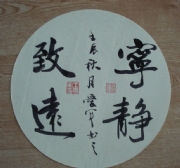 寧靜
致遠
壬辰秋月